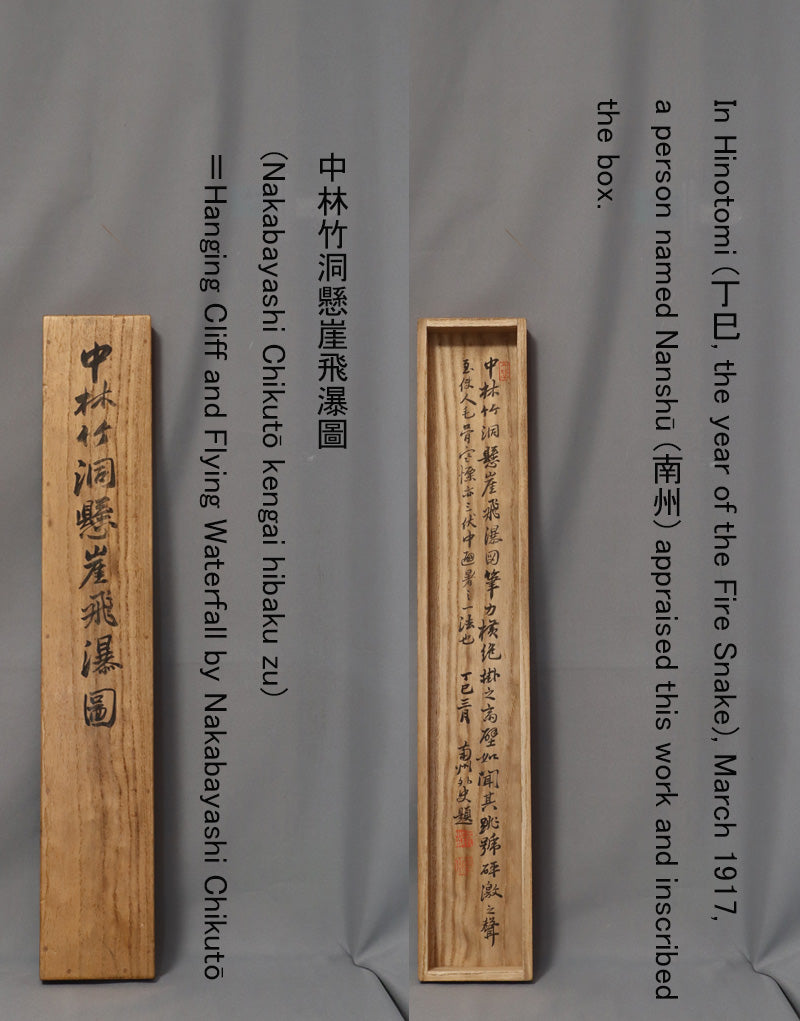 中林竹洞懸崖飛瀑圖
(Nakabayashi Chikutō kengai hibaku zu)
=Hanging Cliff and Flying Waterfall by Nakabayashi Chikutō
中林竹洞懸崖飛瀑圖
In Hinotomi (丁巳, the year of the Fire Snake), March 1917,
a person named Nanshū (南州) appraised this work and inscribed
the box.
中林竹洞懸崖飛瀑図筆力横絶掛之高壁如聞其跳號砰激之聲
至使人毛骨慄亦三伏中避暑之一法也 丁巳三月 南州外史題